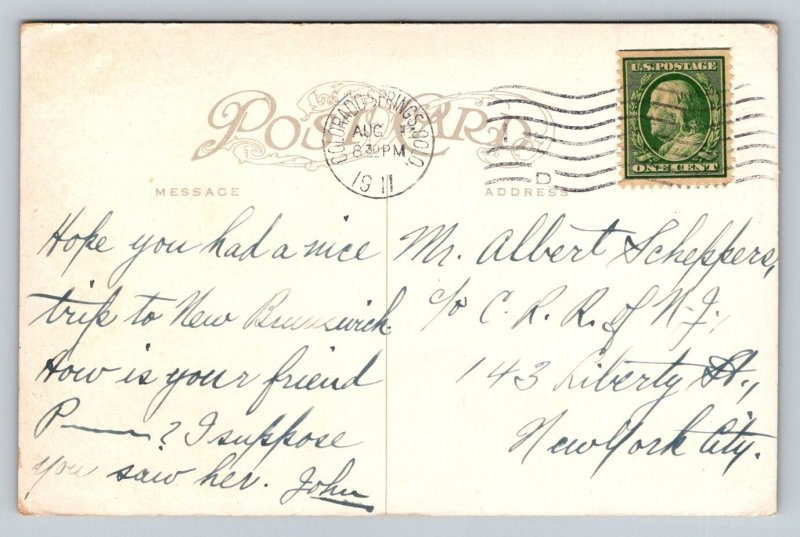 POST CARD
COLORADO SPRINGS, COLO.
AUG 4
8 30 PM
1911
D
U.S. POSTAGE
ONE CENT
MESSAGE
ADDRESS
Hope you had a nice
trip to New Brunswick.
How is your friend
P——? I suppose
you saw her. John
Mr. Albert Scheppers,
c/o C. R. R. of N-J.,
143 Liberty St.,
New York City.